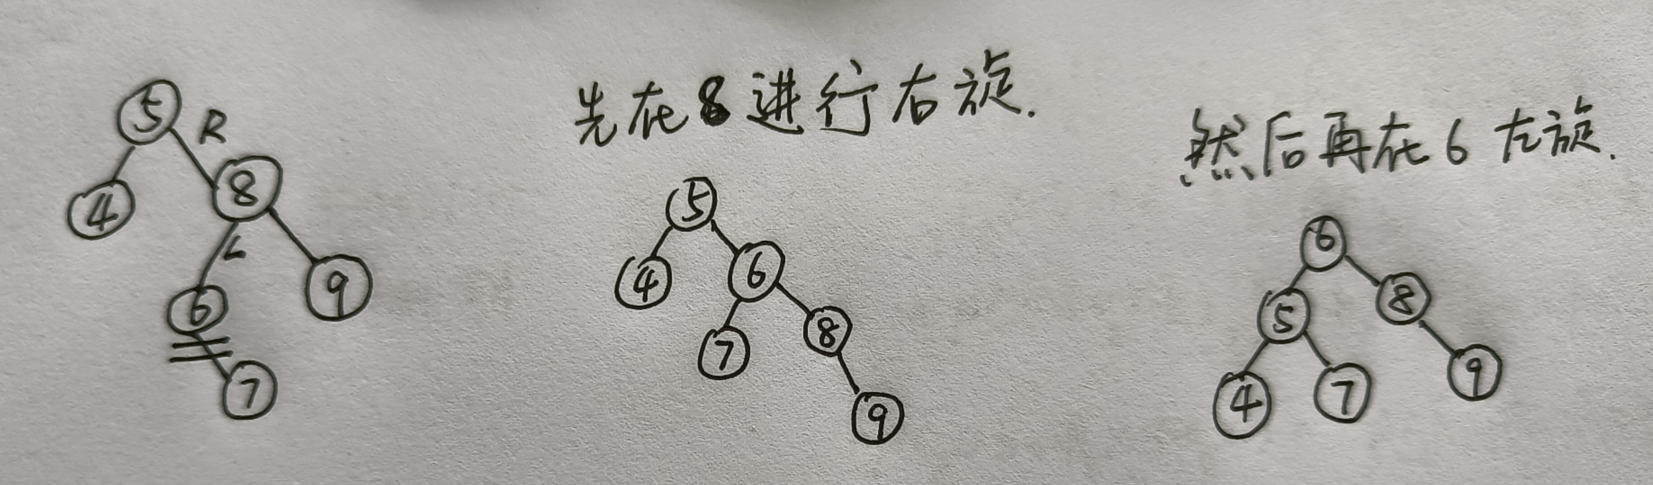 先在8进行右旋.
然后再在6左旋.
5
R
4
8
L
6
9
7
5
4
6
7
8
9
6
5
8
4
7
9